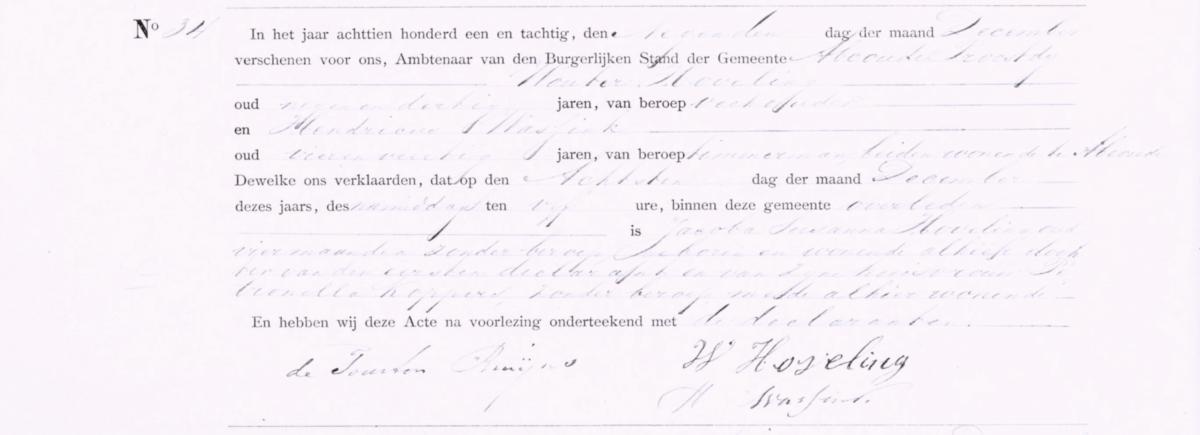 No 34 In het jaar achttien honderd een en tachtig, den negenden dag der maand December
verschenen voor ons, Ambtenaar van den Burgerlijken Stand der Gemeente Abcoude Proostdy
Wouter Hoveling
oud negenendertig jaren, van beroep veehouder
en Hendricus Wasfink
oud vierenveertig jaren, van beroep timmerman beiden wonende te Abcoude
Dewelke ons verklaarden, dat op den Achtsten dag der maand December
dezes jaars, des namiddags ten vyf ure, binnen deze gemeente overleden
is Jacoba Susanna Hoveling oud
vier maanden zonder beroep geboren en wonende alhier doch
ter van den eersten declarant en van zyne huisvrouw Pe
tronella Koppers, zonder beroep mede alhier wonende
En hebben wij deze Acte na voorlezing onderteekend met de declaranten.
de W Hoveling
H